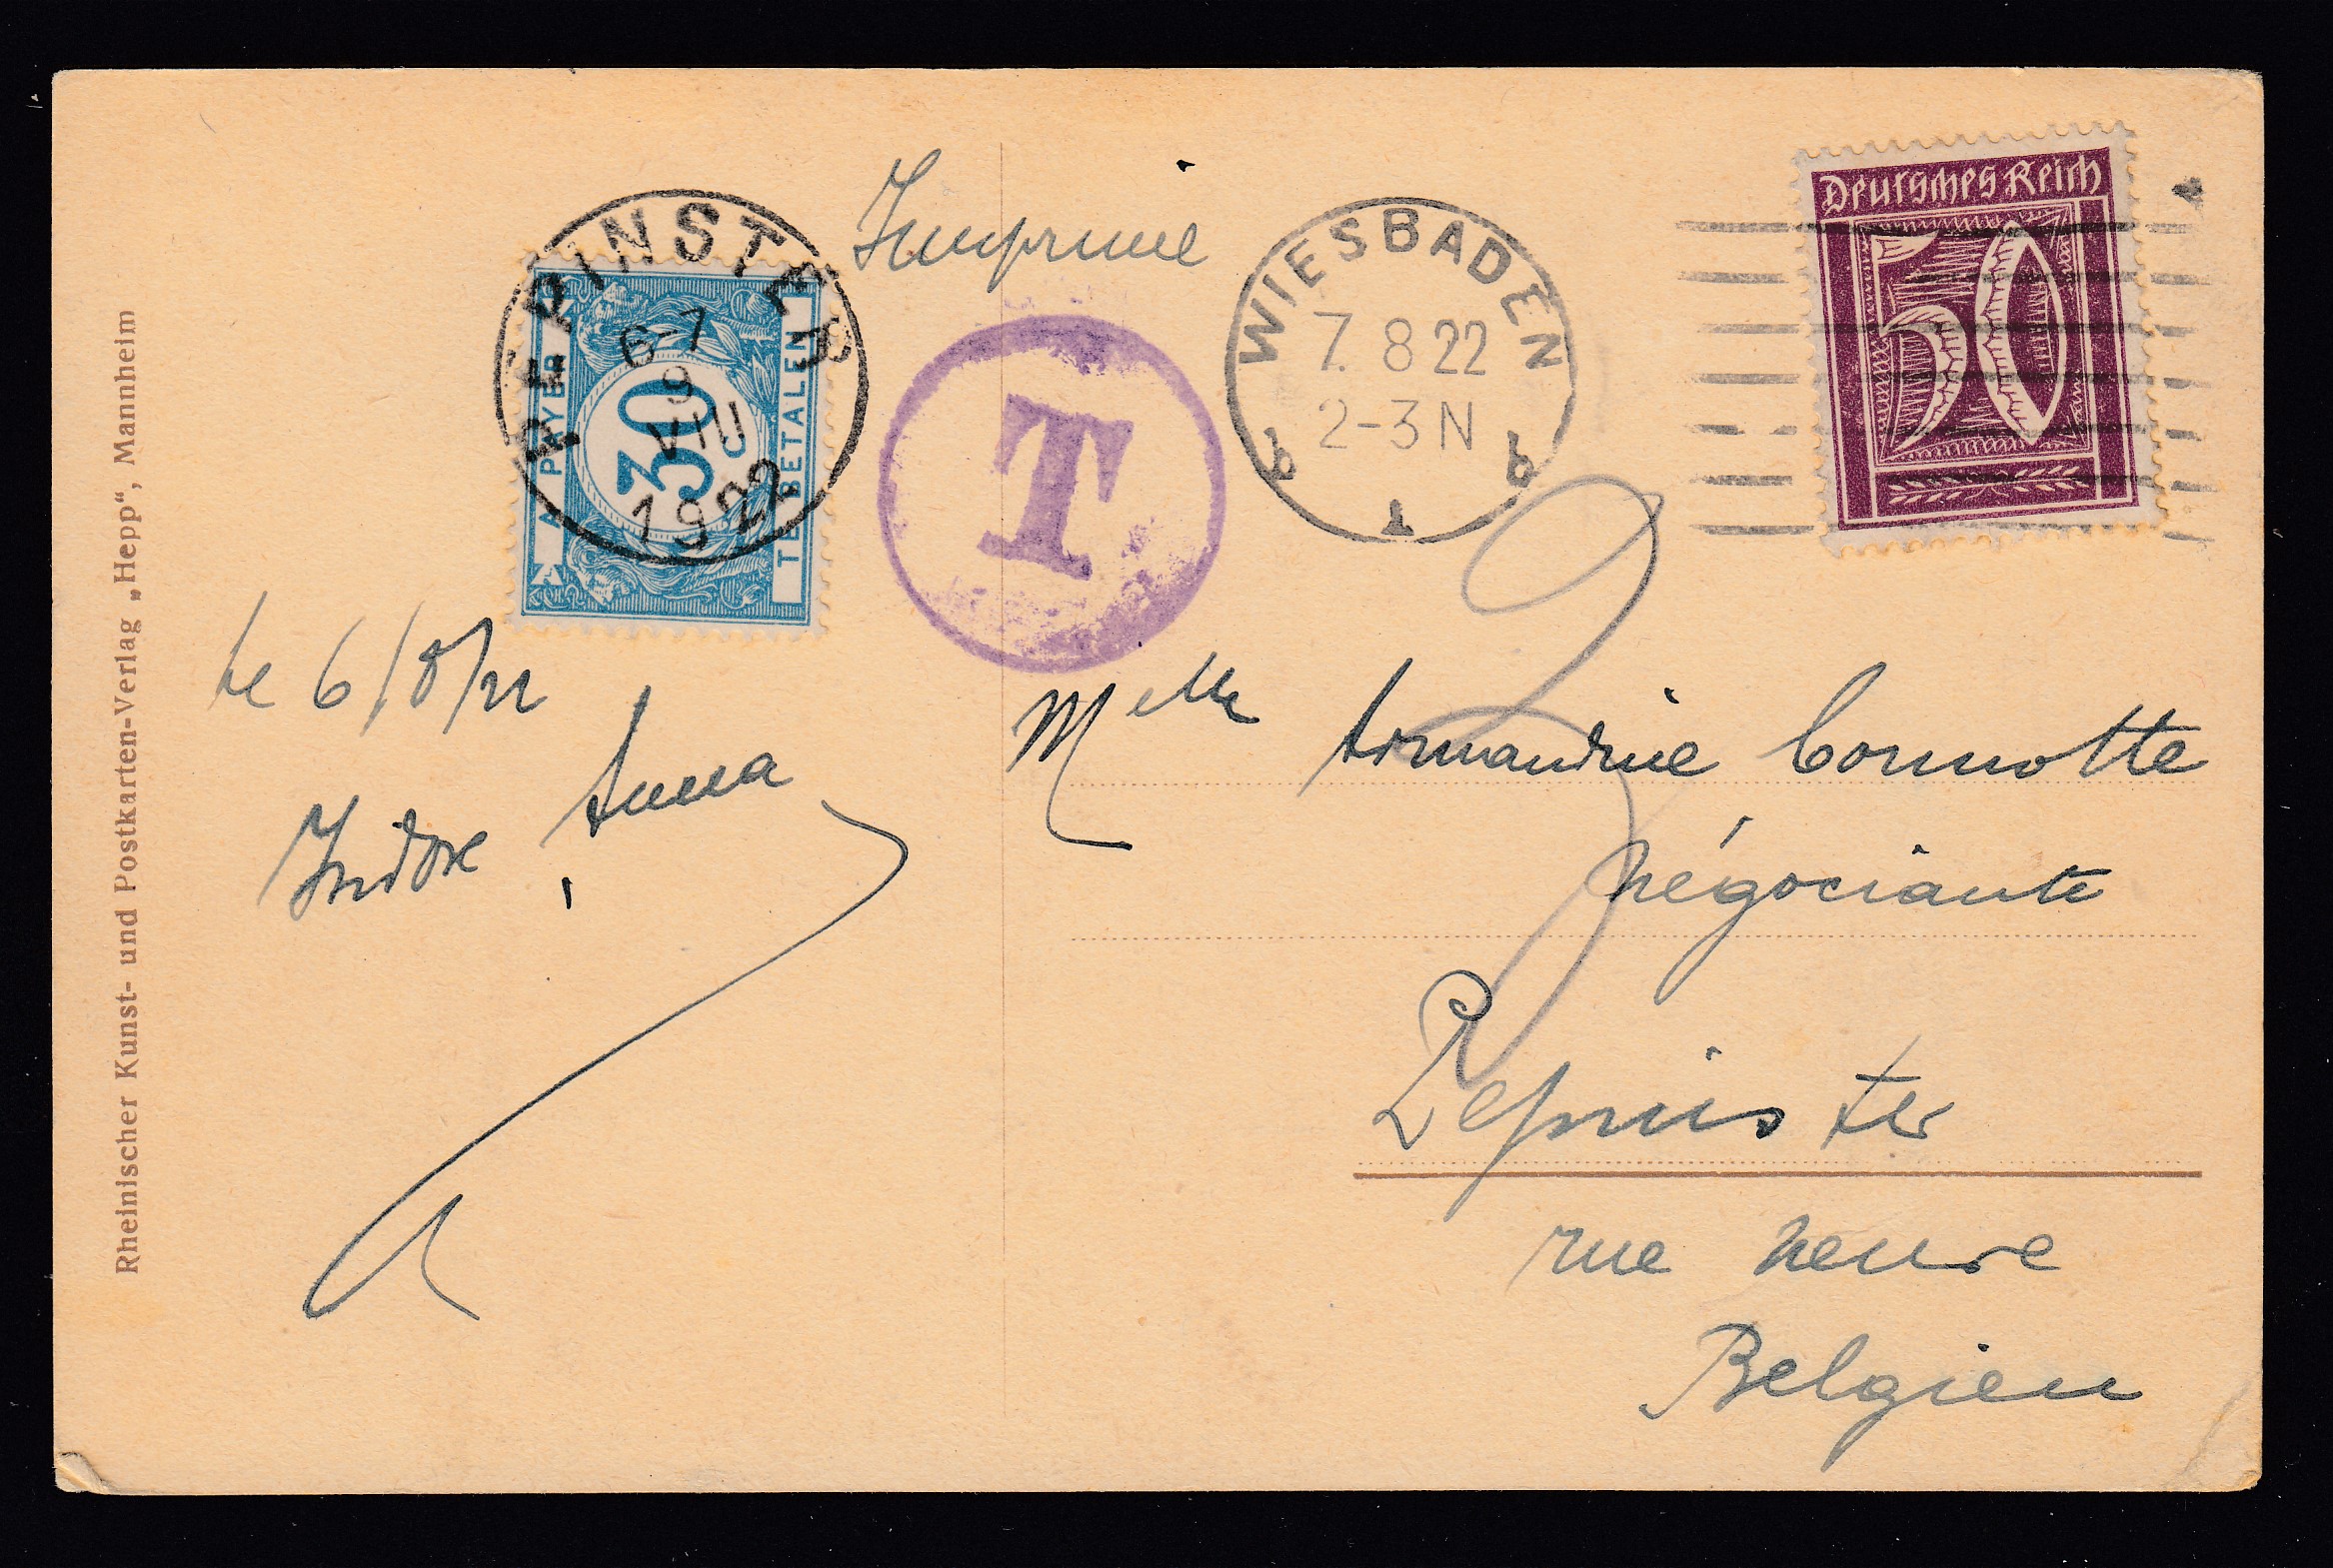 Rheinischer Kunst- und Postkarten-Verlag „Hepp“, Mannheim
PEPINSTER
6-7
9
VIII
1922
A PAYER
30
TE BETALEN
Imprimé
T
WIESBADEN
7. 8 22
2-3 N
b 1 b
Deutsches Reich
50
Le 6/8/22
Isidore Anna
Melle Armandine Connotte
négociante
Pepinster
rue neuve
Belgien